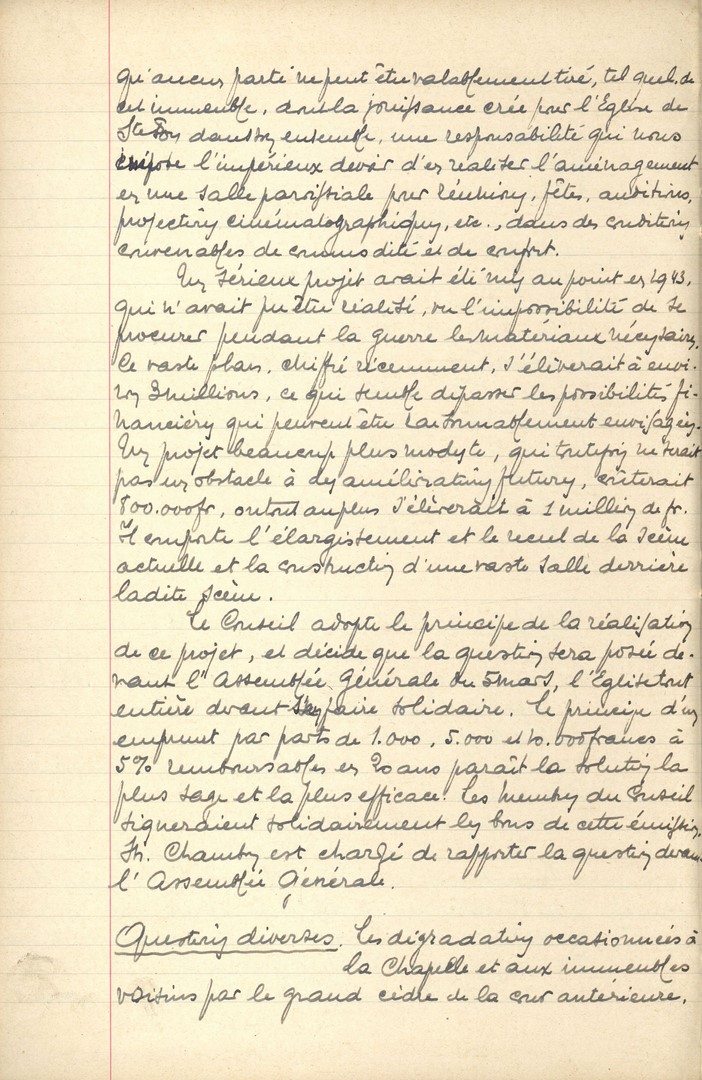 qu'aucun parti ne peut être valablement tiré, tel quel, de
cet immeuble, dont la jouissance crée pour l'Eglise de
Ste Foy dans son ensemble, une responsabilité qui nous
impose l'impérieux devoir d'en réaliser l'aménagement
en une salle paroissiale pour réunions, fêtes, auditions,
projections cinématographiques, etc., dans des conditions
convenables de commodité et de confort.
Un sérieux projet avait été mis au point en 1943,
qui n'avait pu être réalisé, vu l'impossibilité de se
procurer pendant la guerre les matériaux nécessaires.
Ce vaste plan, chiffré récemment, s'élèverait à envi-
ron 3 millions, ce qui semble dépasser les possibilités fi-
nancières qui peuvent être raisonnablement envisagées.
Un projet beaucoup plus modeste, qui toutefois ne serait
pas un obstacle à des améliorations futures, coûterait
800.000 fr, ou tout au plus s'élèverait à 1 million de fr.
Il comporte l'élargissement et le recul de la scène
actuelle et la construction d'une vaste salle derrière
ladite scène.
Le Conseil adopte le principe de la réalisation
de ce projet, et décide que la question sera posée de-
vant l'Assemblée Générale du 5 mars, l'Eglise tout
entière devant s'en faire solidaire. Le principe d'un
emprunt par parts de 1.000, 5.000 et 10.000 francs à
5% remboursables en 20 ans paraît la solution la
plus sage et la plus efficace. Les membres du Conseil
signeraient solidairement les bons de cette émission.
Th. Chambon est chargé de rapporter la question devant
l'Assemblée Générale.
Questions diverses. Les dégradations occasionnées à
la Chapelle et aux immeubles
voisins par le grand cèdre de la cour antérieure,